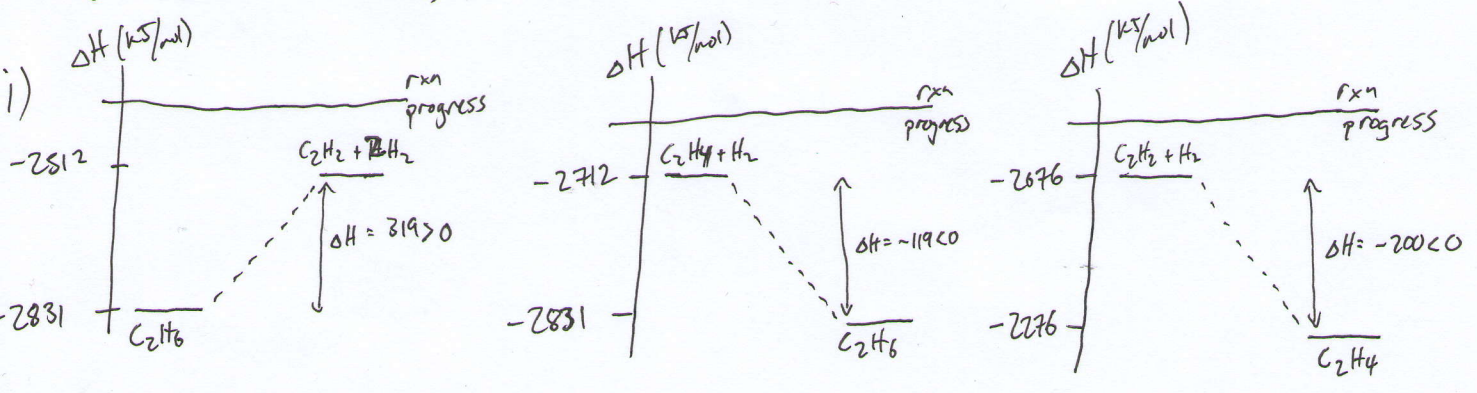 i)
ΔH (kJ/mol)
rxn
progress
-2512
C₂H₂ + H₂
ΔH = 319 > 0
-2831
C₂H₆
ΔH (kJ/mol)
rxn
progress
C₂H₄ + H₂
-2712
ΔH = -119 < 0
-2831
C₂H₆
ΔH (kJ/mol)
rxn
progress
C₂H₂ + H₂
-2076
ΔH = -200 < 0
-2276
C₂H₄